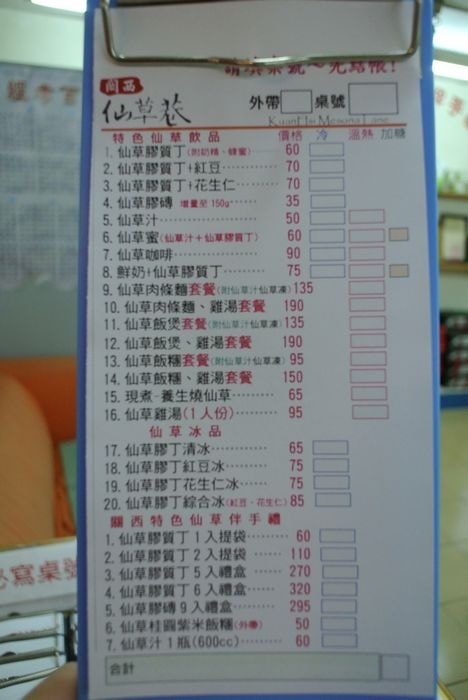 請填桌號～先結帳!
關西
仙草巷 外帶 桌號
KuanHsi Mesona Lane
特色仙草飲品 價格 冷 溫熱 加糖
1. 仙草膠質丁(附奶精、蜂蜜)········ 60
2. 仙草膠質丁+紅豆········· 70
3. 仙草膠質丁+花生仁······· 70
4. 仙草膠磚 增量至 150g········· 35
5. 仙草汁·················· 50
6. 仙草蜜(仙草汁+仙草膠質丁) 60
7. 仙草咖啡················ 90
8. 鮮奶+仙草膠質丁········· 75
9. 仙草肉條麵套餐(附仙草汁仙草凍) 135
10. 仙草肉條麵、雞湯套餐 190
11. 仙草飯煲套餐(附仙草汁仙草凍) 135
12. 仙草飯煲、雞湯套餐 190
13. 仙草飯糰套餐(附仙草汁仙草凍) 95
14. 仙草飯糰、雞湯套餐 150
15. 現煮-養生燒仙草······ 65
16. 仙草雞湯(1人份)······ 95
仙草冰品
17. 仙草膠丁清冰·········· 65
18. 仙草膠丁紅豆冰········ 75
19. 仙草膠丁花生仁冰······ 75
20. 仙草膠丁綜合冰(紅豆、花生仁) 85
關西特色仙草伴手禮
1. 仙草膠質丁 1 入提袋······ 60
2. 仙草膠質丁 2 入提袋······ 110
3. 仙草膠質丁 5 入禮盒······ 270
4. 仙草膠質丁 6 入禮盒······ 320
5. 仙草膠磚 9 入禮盒········ 295
6. 仙草桂圓紫米飯糰(外帶) 50
7. 仙草汁 1 瓶(600cc)······· 60
合計
必寫桌號